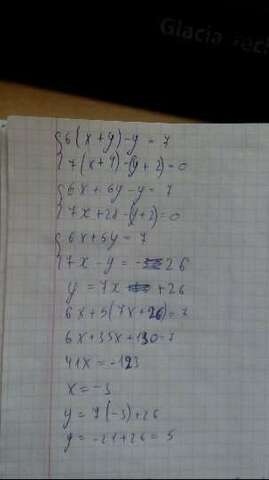 Glacia Tech
{6(x+y)-y=7
{7(x+4)-(y+2)=0
{6x+6y-y=7
{7x+28-(y+2)=0
{6x+5y=7
{7x-y=-26
y=7x+26
6x+5(7x+26)=7
6x+35x+130=7
41x=-123
x=-3
y=7(-3)+26
y=-21+26=5